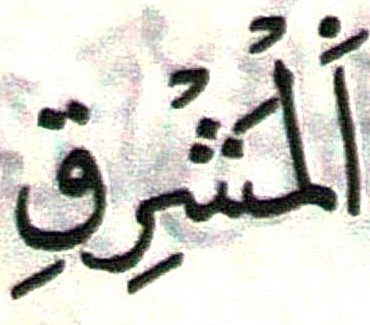 اَلْمَشْرِقِ